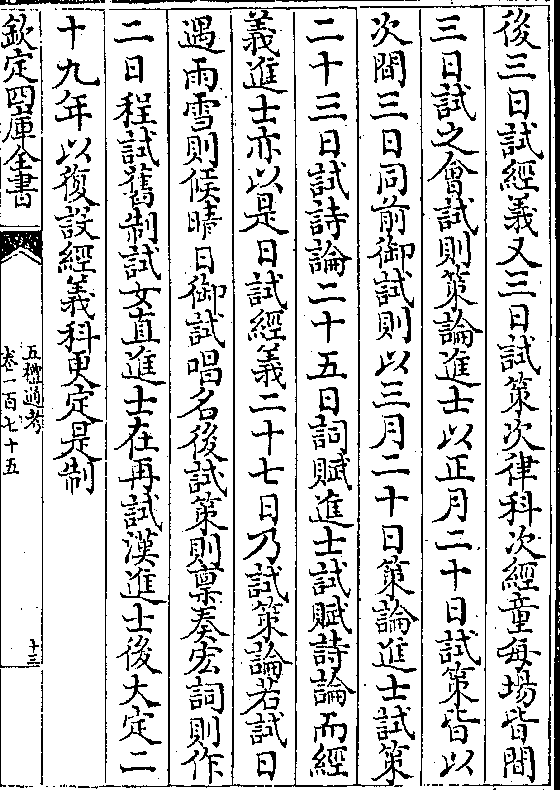 後三日試經義又三日試策次律科次經童每場皆間
三日試之會試則策論進士以正月二十日試策皆以
次間三日同前御試則以三月二十日策論進士試策
二十三日試詩論二十五日詞賦進士試賦詩論而經
義進士亦以是日試經義二十七日乃試策論若試日
遇雨雪則候晴日御試唱名後試策則稟奏宏詞則作
二日程試舊制試女直進士在再試漢進士後大定二
十九年以復設經義科更定是制
欽定四庫全書
五禮通考
卷一百七十五
十三